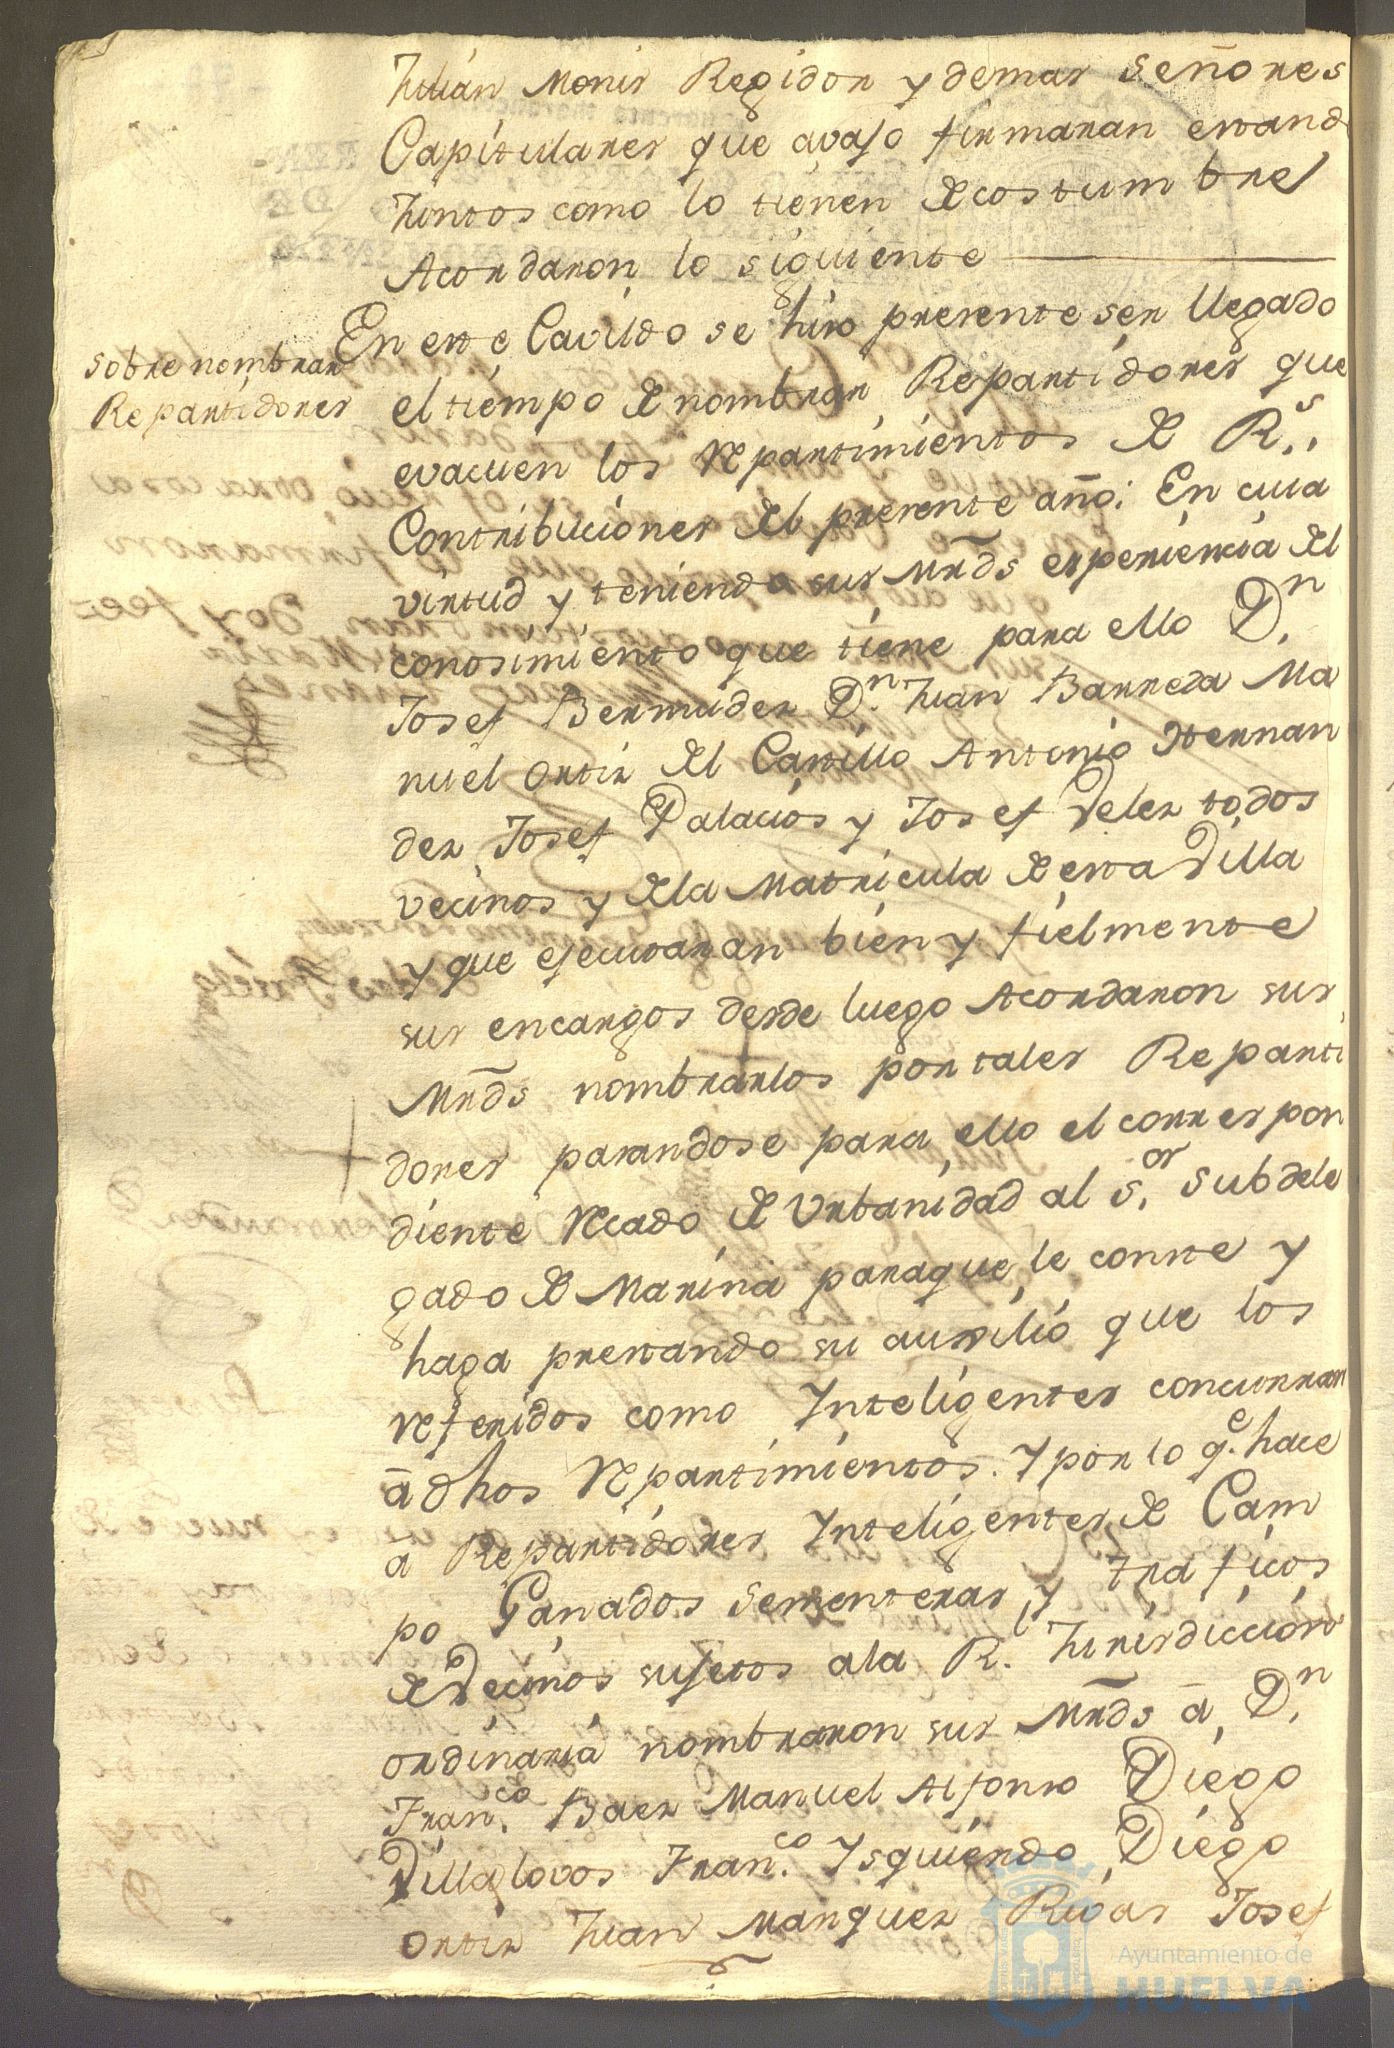 Julián Monis Regidor y demas Señores
Capitulares que avajo firmaran estand
Juntos como lo tienen de costumbre
Acordaron lo siguiente
En este Cavildo se hizo presente ser llegado
sobre nombrar
Repartidores
el tiempo de nombrar Repartidores que
evacuen los repartimientos de R.s
Contribuciones del presente año: En cuia
virtud y teniendo sus Mrds esperiencia del
conosimiento que tiene para ello D.n
Josef Bermudez D.n Juan Barreda Ma
nuel Ortiz del Castillo Antonio Hernan
dez Josef Palacios y Josef Velez todos
vecinos y dela Matricula de esta Villa
y que ejecutaran bien y fielmente
sus encargos desde luego Acordaron sus
Mrds nombrarlos por tales Reparti
dores pasandose para ello el correspon
diente recado de Urbanidad al s.or subdele
gado de Marina paraque le conste y
haga prestando su auxilio que los
referidos como Ynteligentes concurran
a dhos repartimientos. Y por lo q.e hace
a Repartidores Ynteligentes de Cam
po Ganados sementeras y traficos
de Vecinos sujetos ala R.l Jurisdiccion
ordinaria nombraron sus Mrds a D.n
Fran.co Baez Manuel Alfonso Diego
Villalovos Fran.co Ysquierdo Diego
Ortiz Juan Marquez Rivas Josef
Ayuntamiento de
HUELVA